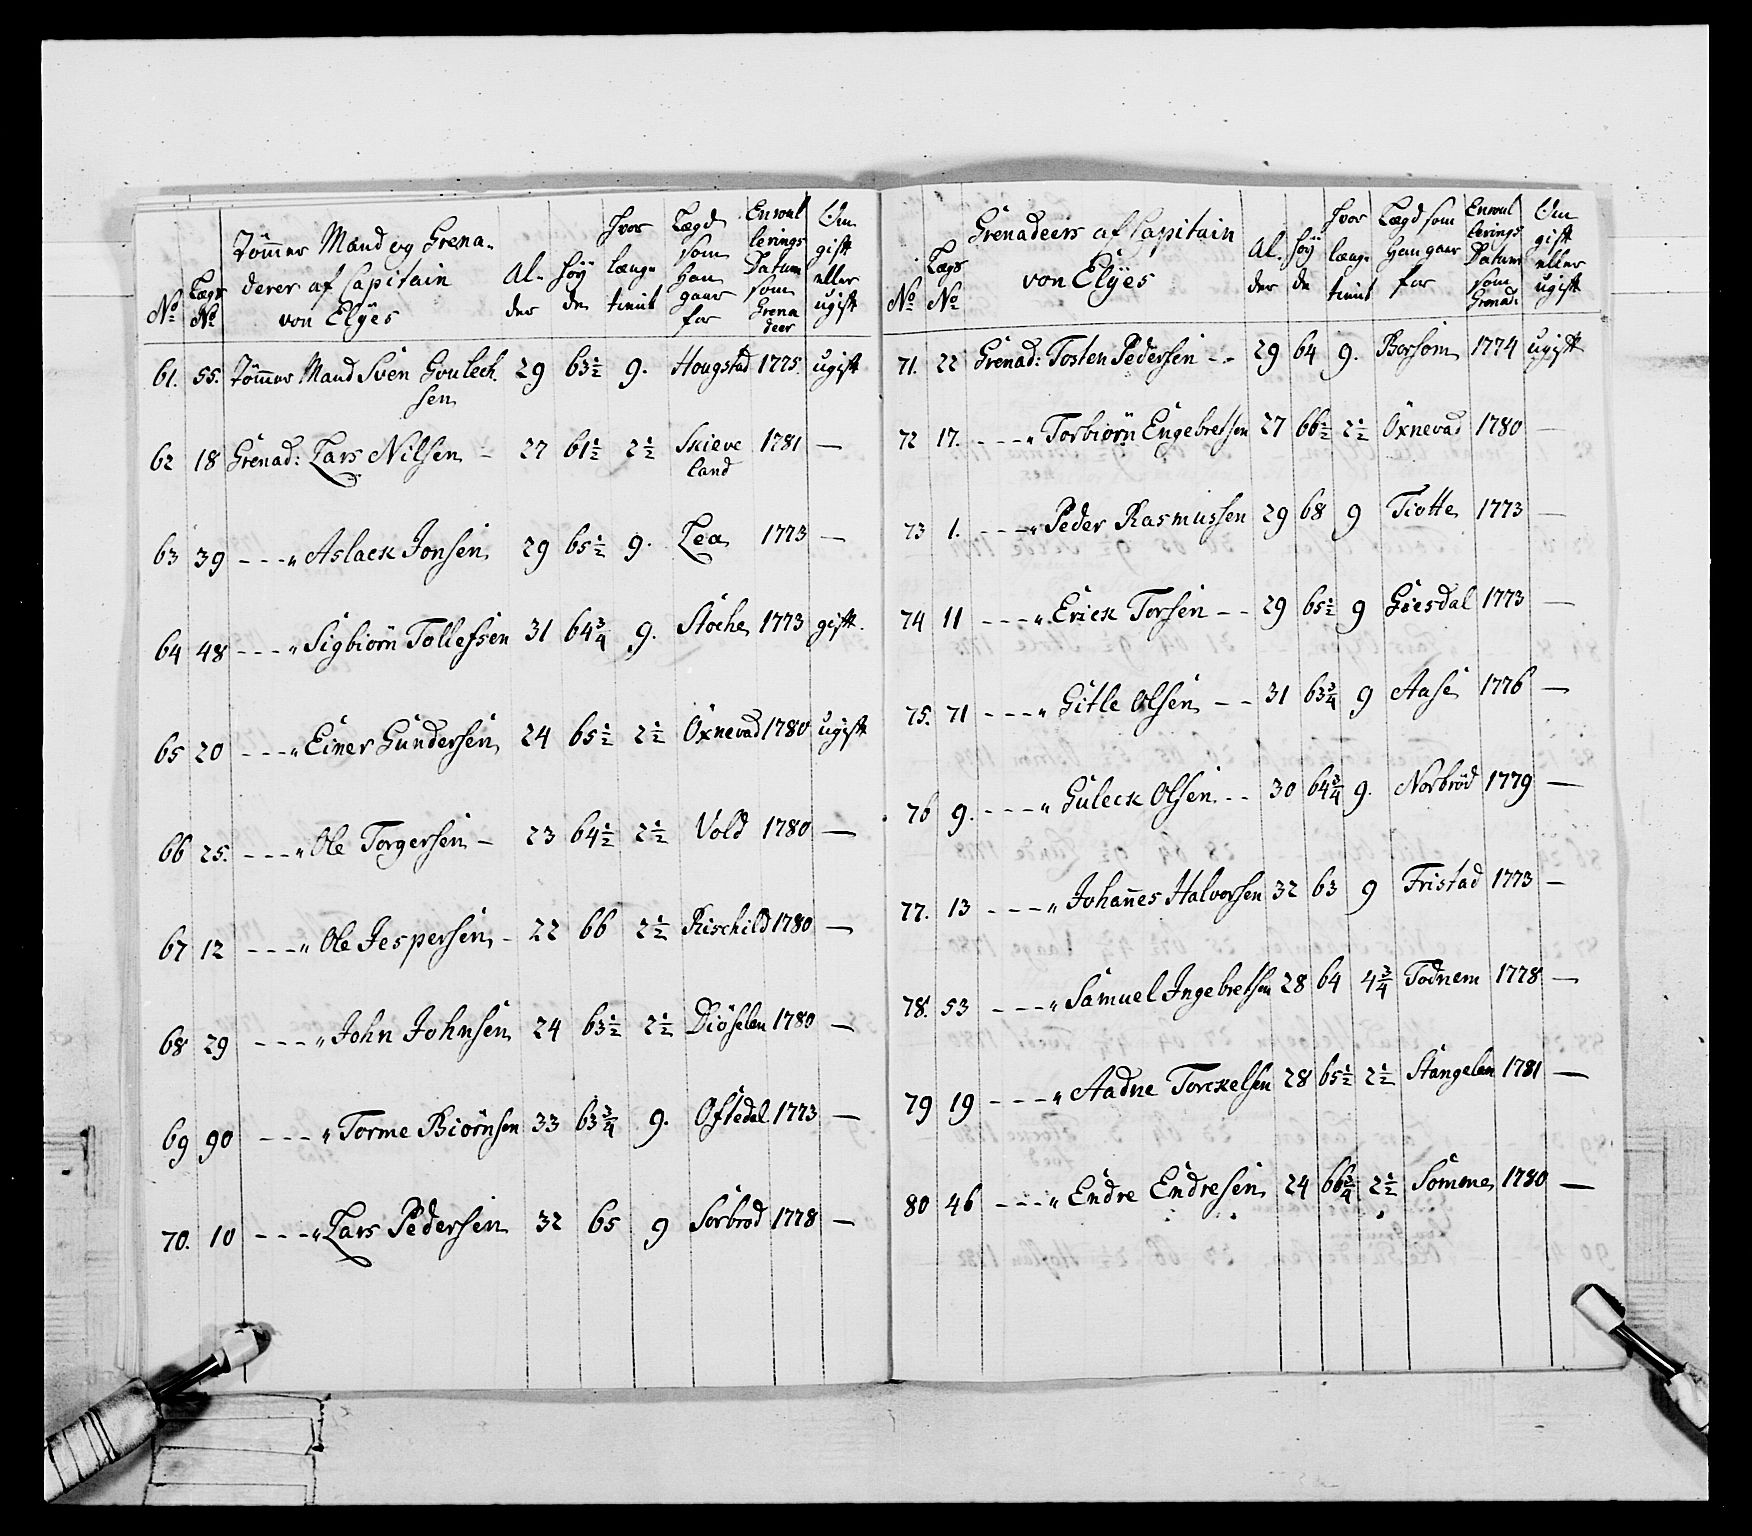 No Lægs No Tömmer Mand og Grenaderer af Capitain von Elÿes Alder Höyde Hvor længe tient Lægd som Han gaar for Enroulerings Datum som Grenadeer Om gift eller ugift
61. 55. Tömmer Mand Sven Gouleck 29 63½ 9. Hougstad 1775. ugift
sen
62 18 Grenad: Lars Nilsen - 27 61½ 2½ Skieve 1781 —
land
63 39 - - - „ Aslack Jonsen 29 65½ 9. Lea 1773 —
64 48 - - - „ Sigbiörn Tollefsen 31 64¾ 9. Stoche 1773 gift.
65 20 - - - „ Einer Gundersen 24 65½ 2½ Öxnevad 1780 ugift
66 25. - - - „ Ole Torgersen - 23 64½ 2½ Vold 1780 —
67 12 - - - „ Ole Jespersen - 22 66 2½ Rischild 1780 —
68 29 - - - „ John Johnsen 24 63½ 2½ Diöselan 1780 —
69 90 - - - „ Torme Biörnsen 33 63¾ 9. Oftedal 1773 —
70. 10 - - - „ Lars Pedersen 32 65 9 Sorbrod 1778 —
No Lægs No Grenadeers af Capitain von Elÿes Alder Höyde Hvor længe tient Lægd som Han gaar for Enroulerings Datum som Grenad: Om gift eller ugift
71. 22 Grenad: Tosten Pedersen - - 29 64 9. Borsom 1774 ugift
72 17. - - - „ Torbiörn Engebretsen 27 66½ 2½ Öxnevad 1780 —
73 1. - - - „ Peder Rasmussen 29 68 9 Tiotte 1773 —
74 11 - - - „ Erick Torsen - - 29 65½ 9 Giesdal 1773 —
75. 71 - - - „ Gitle Olsen - - 31 63¾ 9 Aase 1776 —
76 9. - - - „ Guleck Olsen - - 30 64¾ 9. Norbröd 1779 —
77. 13 - - - „ Johannes Halvorsen 32 63 9 Fristad 1773 —
78. 53 - - - „ Samuel Ingebretsen 28 64 4¾ Todnem 1778 —
79 19 - - - „ Aadne Torckelsen 28 65½ 2½ Stangelan 1781 —
80 46 - - - „ Endre Endresen 24 66¾ 2½ Somme 1780 —